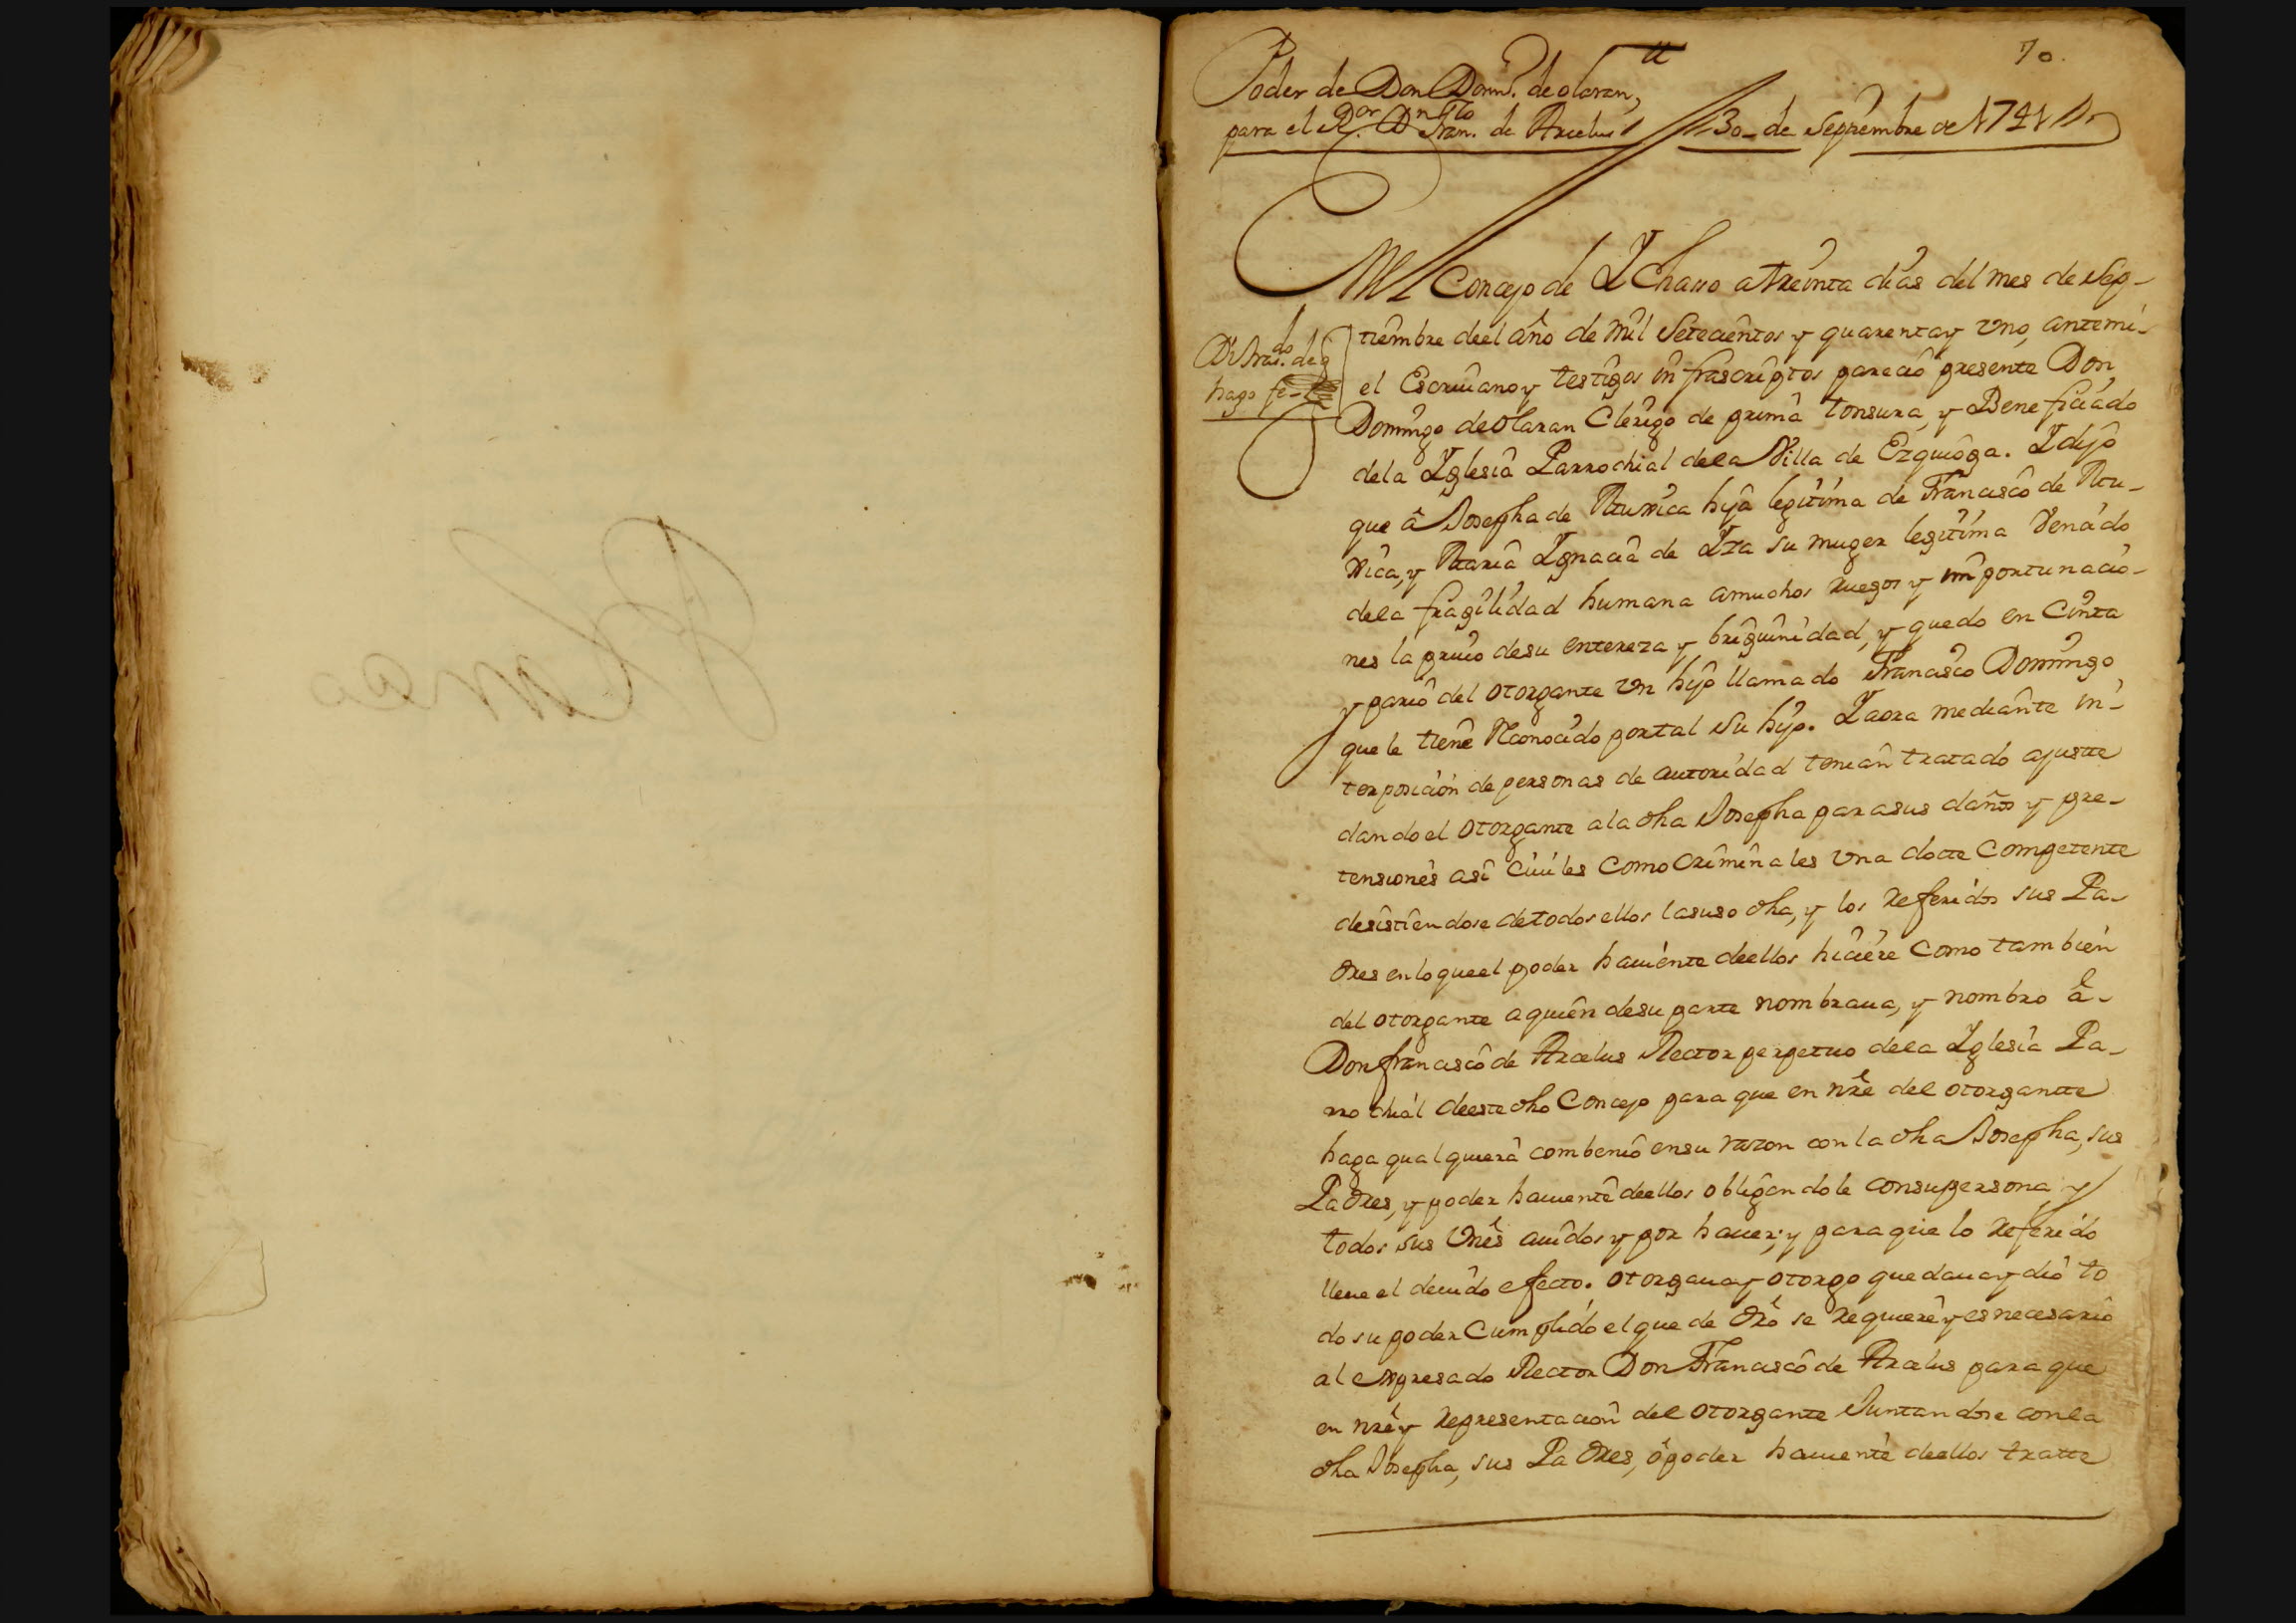 70.
Poder de Don Dom.º de olaran,
para el R.or Dn Fran.co de Arcelus
30_ de Septiembre de 1741
En el Concejo de Ychasso a treinta dias del mes de Sep-
tiembre de el año de mil Setecientos y quarenta y uno, ante mi
el Escriuano y testigos infrascriptos parecio presente Don
Di tras.do de q
hago fe
Domingo de olaran Clerigo de prima tonsura, y Beneficiado
de la Yglesia Parrochial de la Villa de Ezquioga. Y dijo
que â Josepha de hija legitima de Francisco de
y Maria Ygnacia de Yza su muger legitima Vencido
de la fragilidad humana a muchos ruegos y importunacio-
nes la priuo de su entereza y birginidad, y quedo en Cinta
y pario del otorgante un hijo llamado Francisco Domingo
que le tiene Reconocido por tal su hijo. Y aora mediante in-
terposicion de personas de autoridad tenian tratado ajustte
dando el otorgante a la dha Josepha para sus daños y pre-
tensiones asi ciuiles como criminales una dotte Competente
desistiendose de todos ellos la suso dha, y los referidos sus Pa-
dres en lo que el poder hauiente de ellos hiciere como tambien
del otorgante a quien de su parte nombraua, y nombro â-
Don francisco de Arcelus Rector perpetuo de la Yglesia Pa-
rrochial de este dho Concejo para que en nre del otorgantte
haga qualquiera combenio en su razon con la dha Josepha, sus
Padres, y poder hauiente de ellos obligandole con su persona y
todos sus Vnes auidos y por hauer; y para que lo referido
lleue el deuido efecto. otorgaua y otorgo que daua y dio to
do su poder Cumplido el que de dro se requiere y es necesario
al expresado Rector Don Francisco de Arcelus para que
en nre y representacion del otorgante Juntandose con la
dha Josepha, sus Padres, ô poder hauiente de ellos tratte